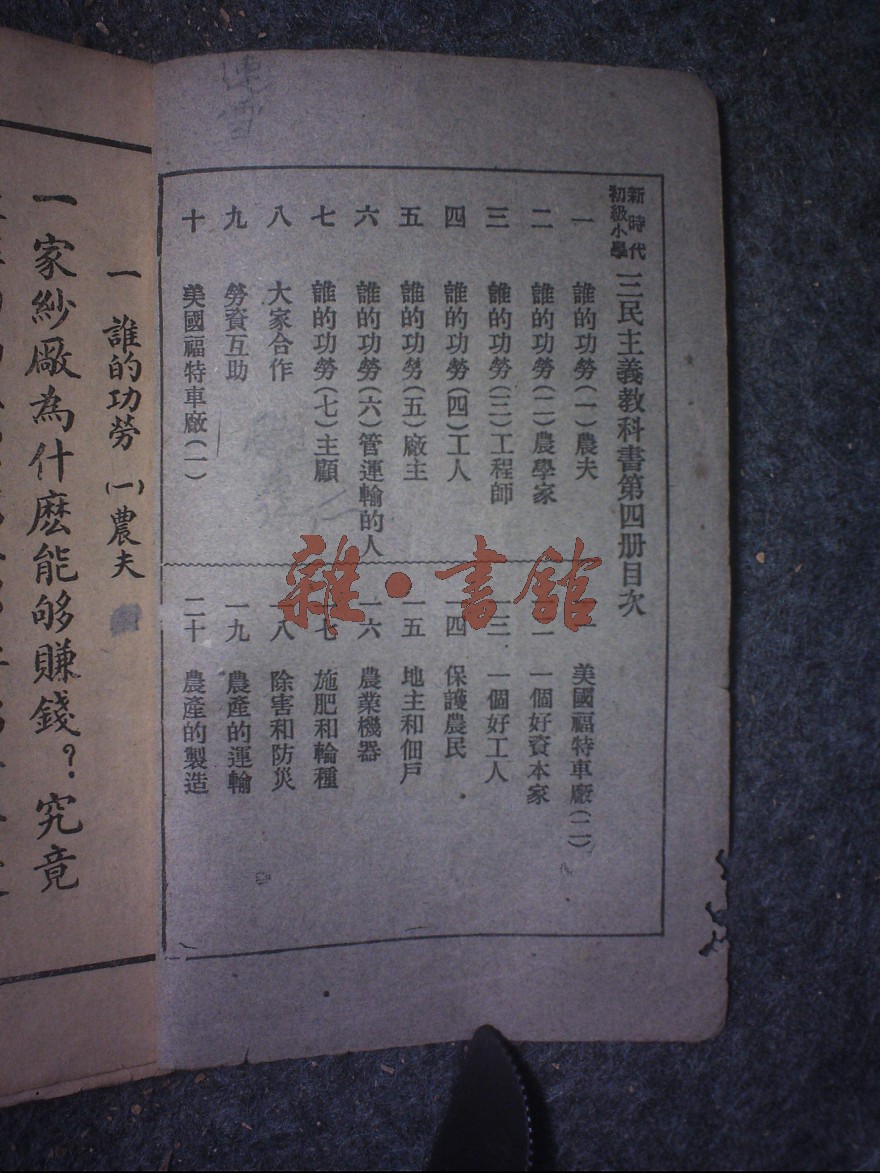 新時代
初級小學
三民主義教科書第四册目次
一 誰的功勞(一)農夫
二 誰的功勞(二)農學家
三 誰的功勞(三)工程師
四 誰的功勞(四)工人
五 誰的功勞(五)廠主
六 誰的功勞(六)管運輸的人
七 誰的功勞(七)主顧
八 大家合作
九 勞資互助
十 美國福特車廠(一)
一 美國福特車廠(二)
一個好資本家
三 一個好工人
一四 保護農民
一五 地主和佃戶
一六 農業機器
一七 施肥和輪種
一八 除害和防災
一九 農產的運輸
二十 農產的製造
雜·書館
一 誰的功勞(一)農夫
一家紗廠為什麽能够賺錢?究竟